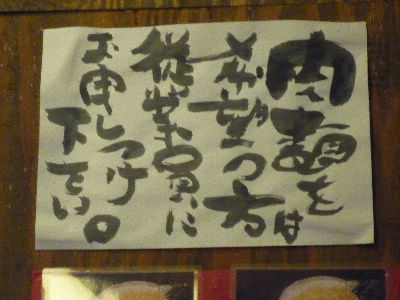 肉麺を
希望の方は
従業員に
お申しつけ
下さい。